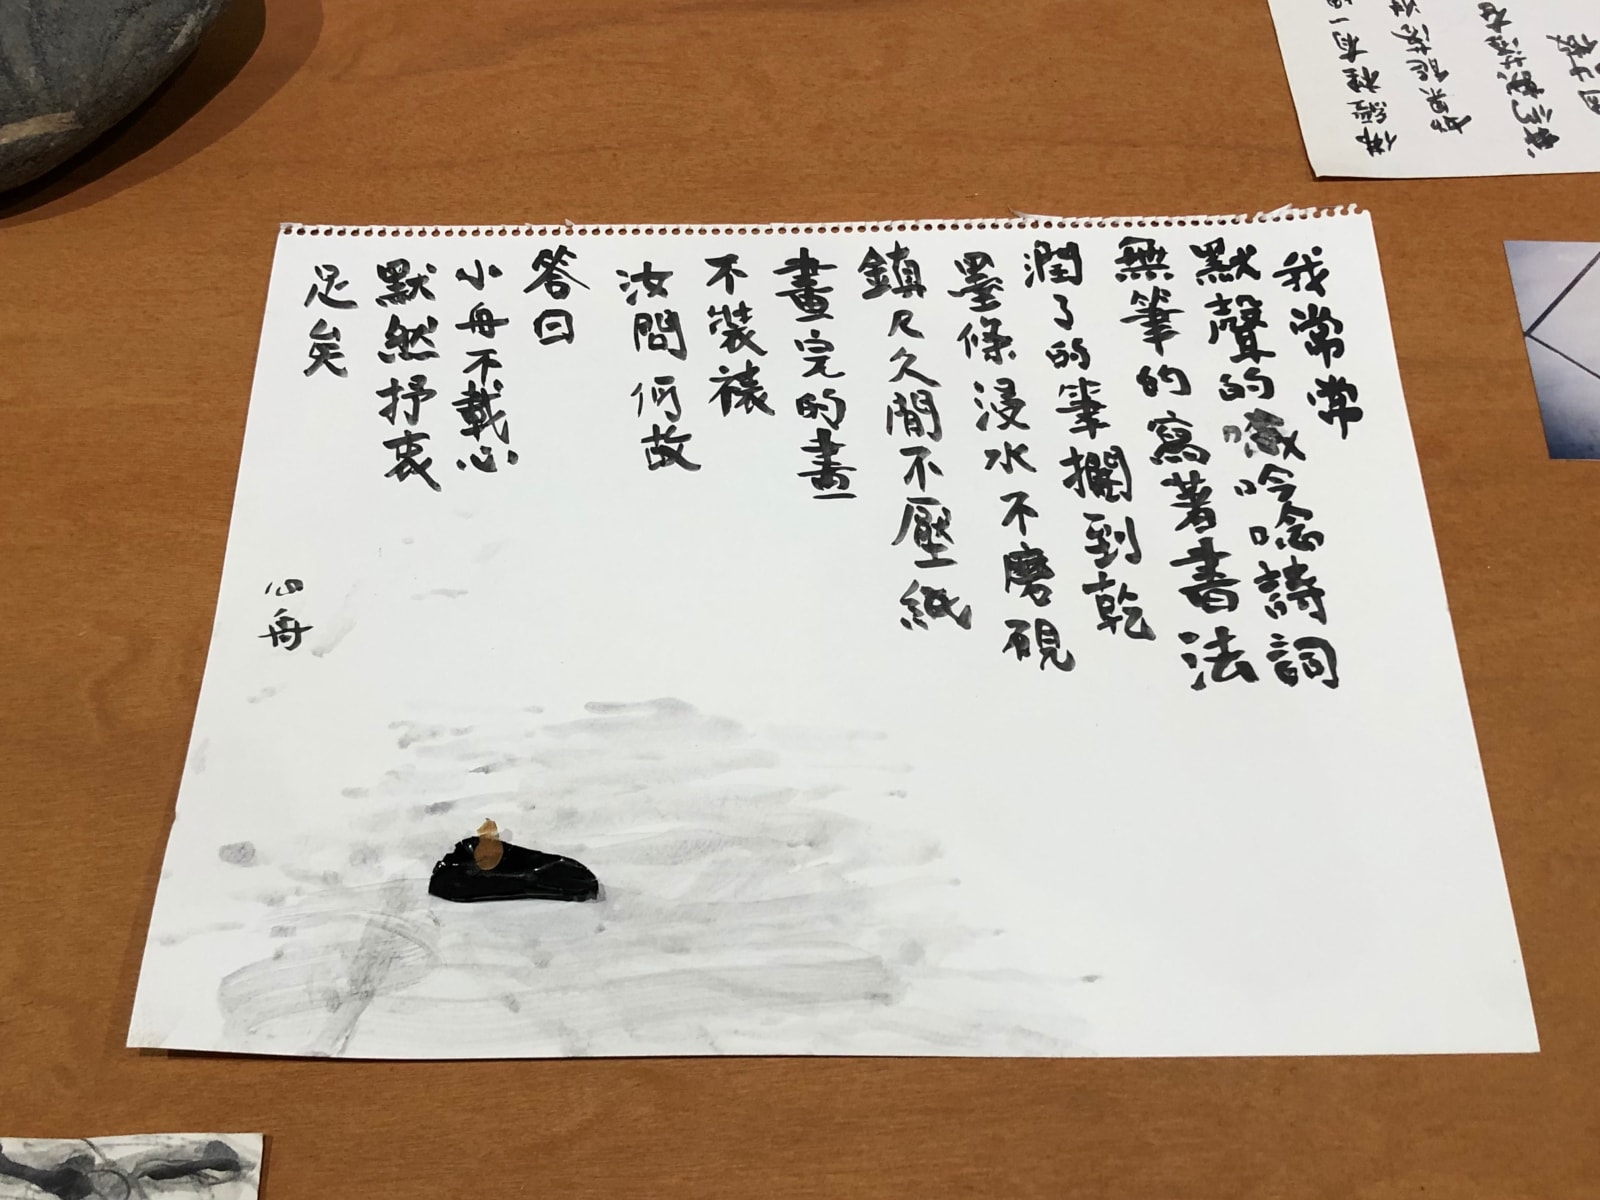 我常常
默聲的吟唸詩詞
無筆的寫著書法
潤了的筆擱到乾
墨條浸水不磨硯
鎮尺久閒不壓紙
畫完的畫
不裝裱
汝問何故
答曰
小舟不載心
默然抒衷
足矣
心舟
佛經裡有一